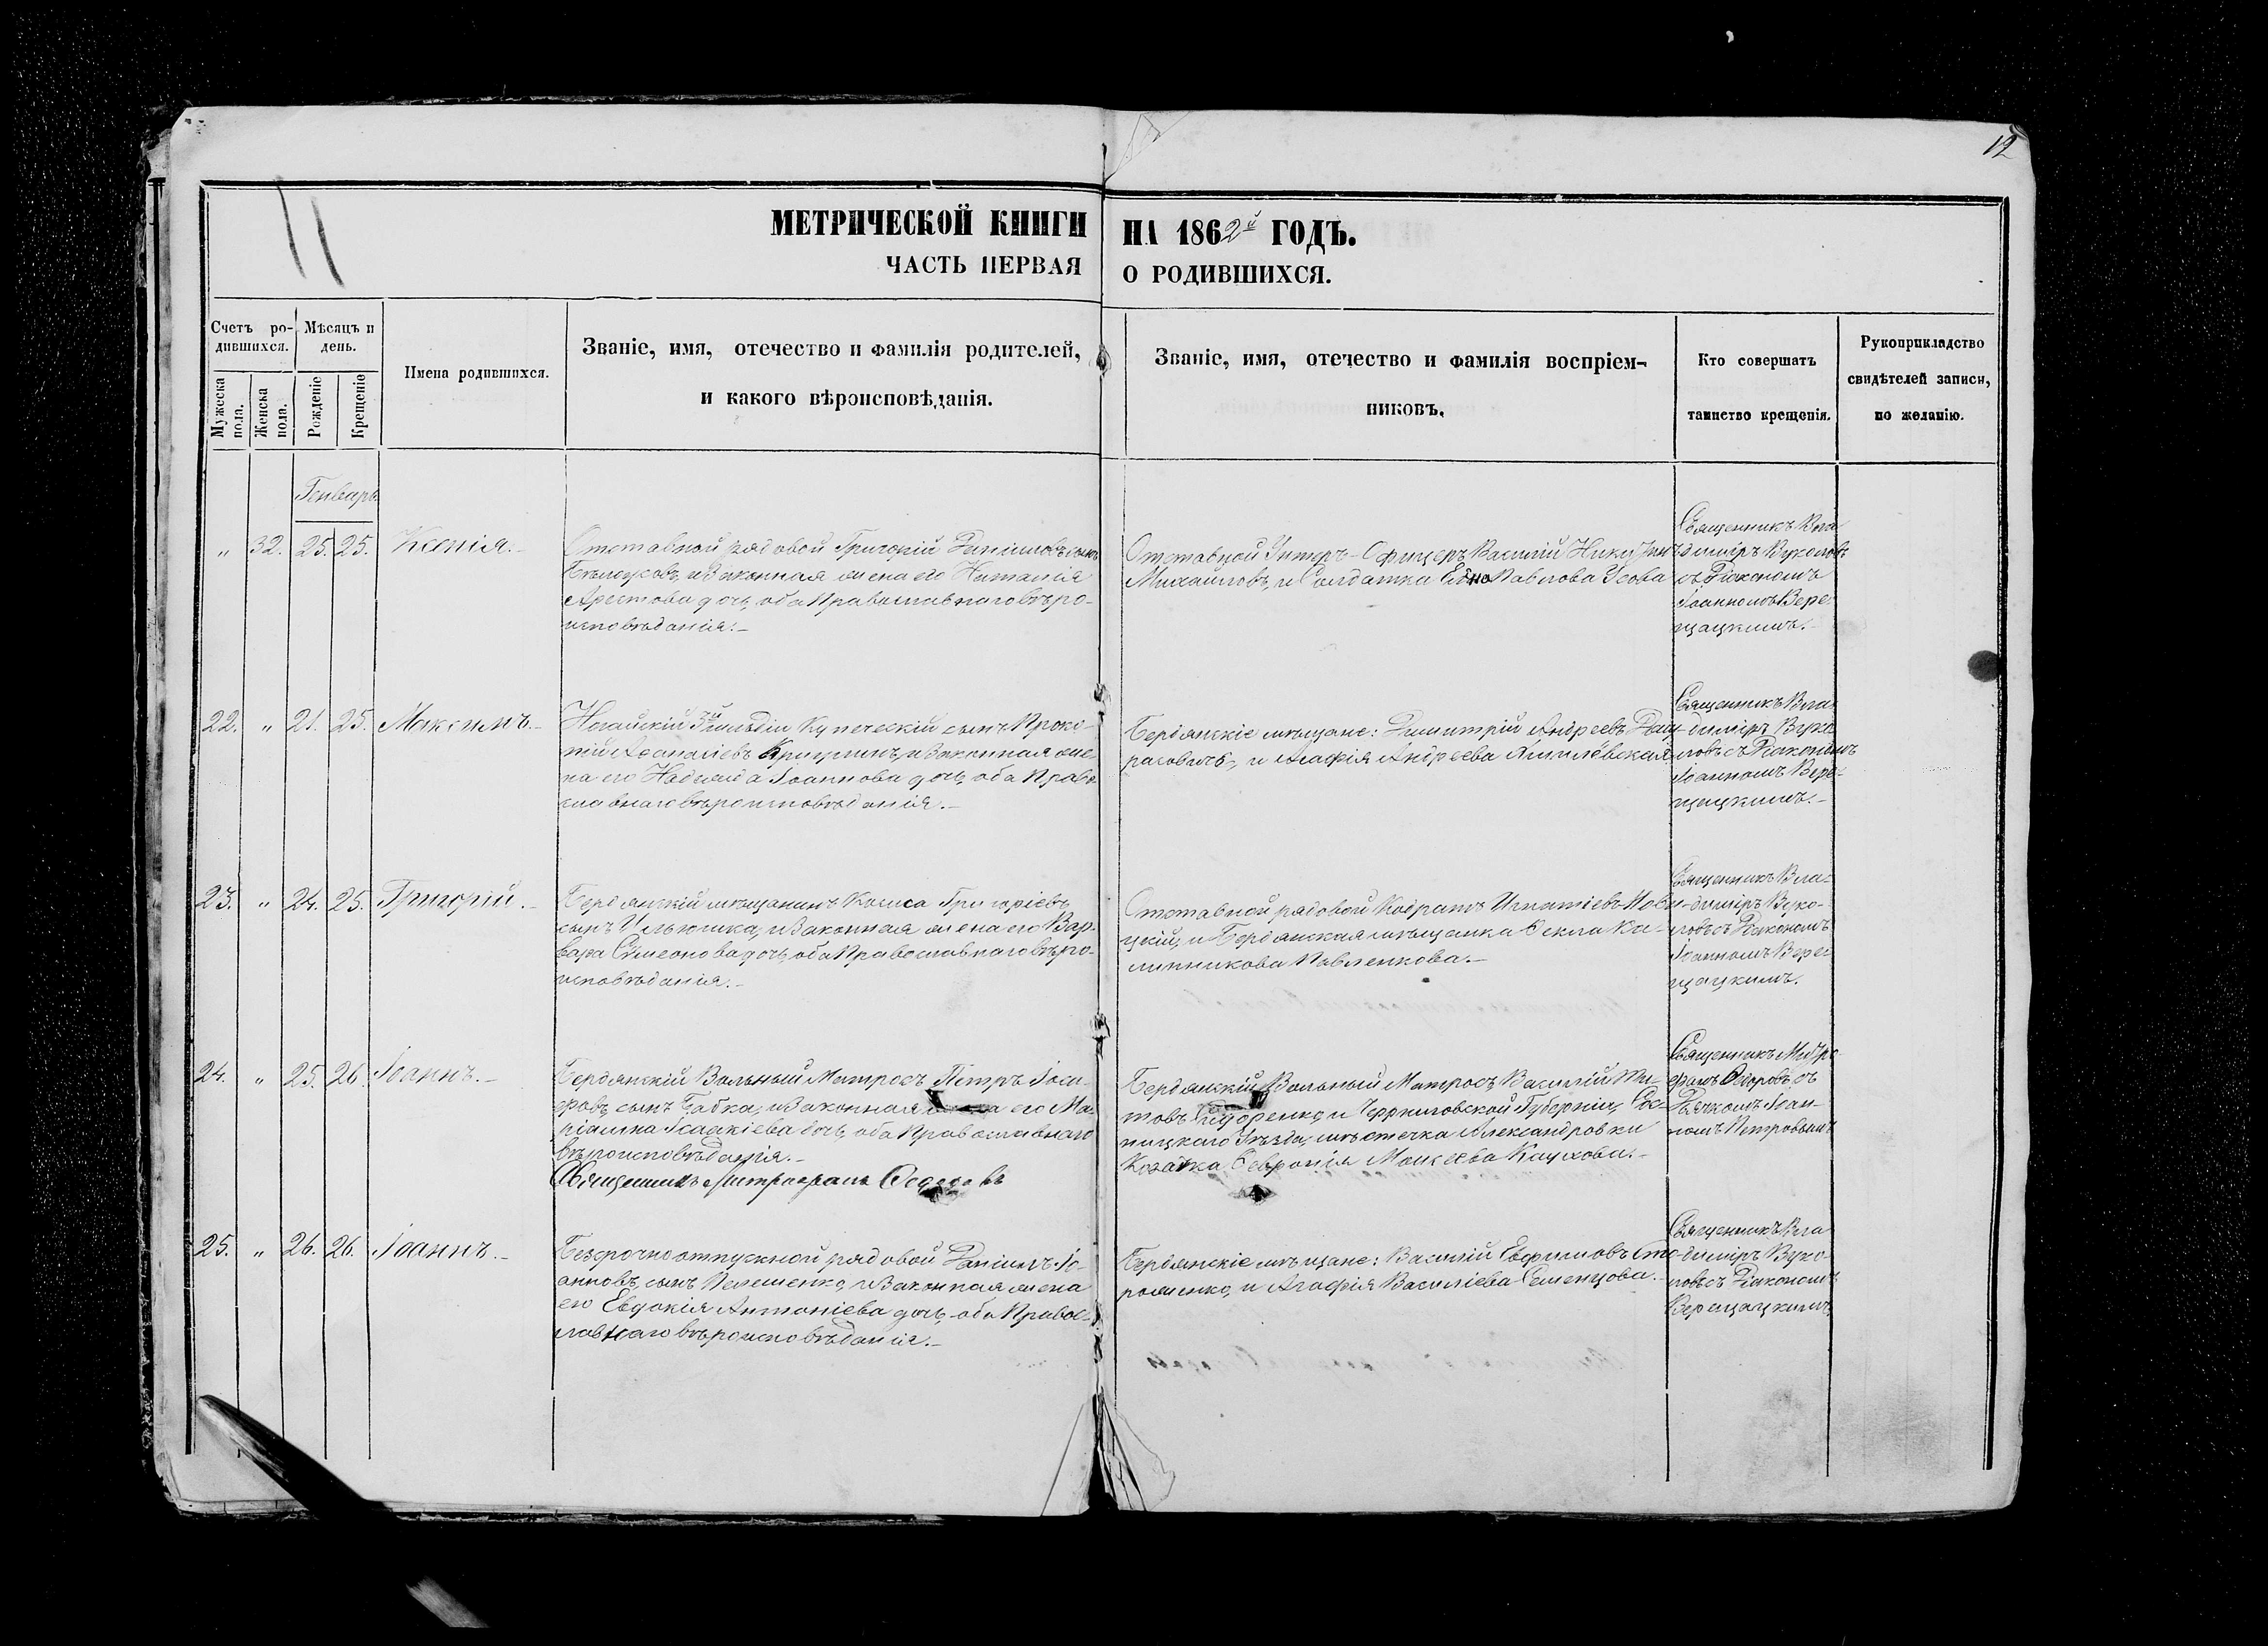 12
11
МЕТРИЧЕСКОЙ КНИГИ НА 1862й ГОДЪ.
ЧАСТЬ ПЕРВАЯ О РОДИВШИХСЯ.
Счетъ ро-
дившихся.
Мужеска
пола.
Женска
пола.
Мѣсяцъ и
день.
Рожденіе
Крещеніе
Имена родившихся.
Званіе, имя, отечество и фамилія родителей,
и какого вѣроисповѣданія.
Званіе, имя, отечество и фамилія воспріем-
никовъ.
Кто совершатъ
таинство крещенія.
Рукоприкладство
свидѣтелей записи,
по желанію.
Генварь
„ 32. 25. 25. Ксенія.-
Отставной рядовой Григорій Даніиловъ сынъ
Бѣлоусовъ, и Законная жена его Наталія
дочь, оба Православнаго вѣро-
исповѣданія.-
Отставной Унтеръ-Офицеръ Василій
Михаиловъ, и Солдатка Павлова Усова
Священникъ Вла
димиръ Вуколовъ
съ Діакономъ
Іоанномъ Вере-
щацкимъ.-
22. „ 21. 25. Максимъ.-
Ногайскій 3й гильдіи Купеческій сынъ Проко-
пій и Законная же-
на его Надежда Іоаннова дочь, оба Право
славнаго вѣроисповѣданія.-
Бердянскіе мѣщане: Димитрій Андреевъ
и Агафія Андреева
Священникъ Вла-
димиръ Вуко
ловъ съ Діакономъ
Іоанномъ Вере-
щацкимъ.-
23. „ 24. 25. Григорій.-
Бердянскій мѣщанинъ Косма Григоріевъ
сынъ и Законная жена его Вар-
вара Сѵмеонова дочь, оба Православнаго вѣро-
исповѣданія.-
Отставной рядовой Кодратъ Игнатіевъ Нови-
цкій, и Бердянская мѣщанка Ѳекла Ка-
линникова Павленкова.-
Священникъ Вла-
димиръ Вуко-
ловъ съ Діакономъ
Іоанномъ Вере-
щацкимъ.
24. „ 25. 26. Іоаннъ.-
Бердянскій Вольный Матросъ Петръ Іоси-
фовъ сынъ Бабка, и Законная его Ма-
ріамна Исаакіева дочь, оба Православнаго
вѣроисповѣданія.-
Священникъ Митрофанъ Ѳедоровъ
Бердянскій Вольный Матросъ Василій Ти-
товъ Сидоренко, и Черниговской Губерніи, Сос-
ницкаго Уѣзда, мѣстечка Александровки
Козачка Ѳевронія Моисеева
Священникъ Митро-
фанъ Ѳедоровъ, съ
Дьячкомъ Іоан-
номъ Петровымъ
25. „ 26. 26. Іоаннъ.-
Безсрочноотпускной рядовой Даніилъ Іо-
анновъ сынъ Пелешенко, и Законная жена
его Евдокія Антоніева дочь, оба Правос-
лавнаго вѣроисповѣданія.-
Бердянскіе мѣщане: Василій Евфимовъ Сто-
роженко, и Агафія Василіева Семенцова.-
Священникъ Вла
димиръ Вуко-
ловъ съ Діакономъ
Верещацкимъ